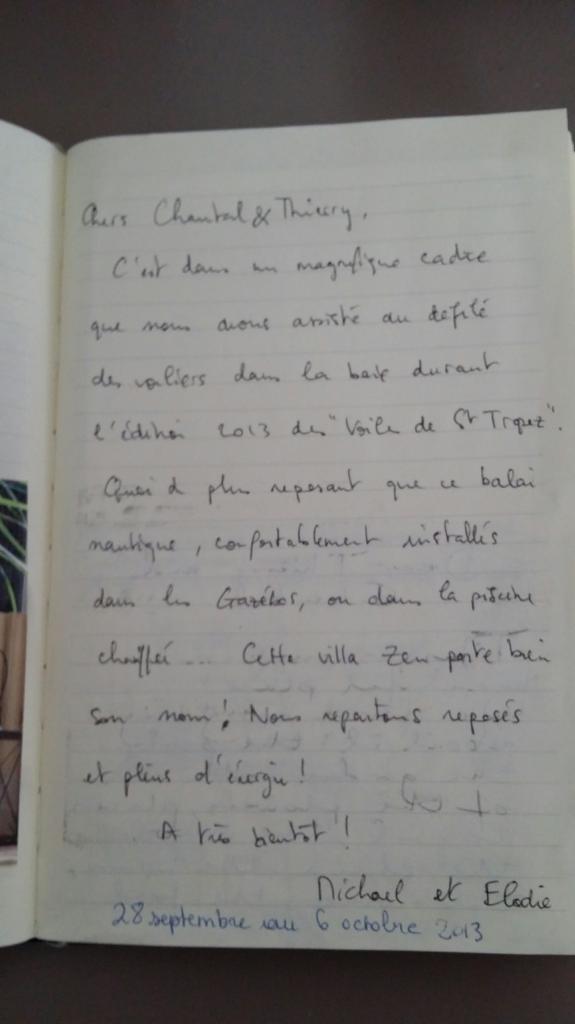 Chers Chantal & Thierry,
C'est dans un magnifique cadre
que nous avons assisté au défilé
des voiliers dans la baie durant
l'édition 2013 des "Voiles de St Tropez".
Quoi de plus reposant que ce balai
nautique, confortablement installés
dans les Gazébos, ou dans la piscine
chauffée... Cette villa Zen porte bien
son nom! Nous repartons reposés
et pleins d'énergie!
A très bientôt!
Michael et Elodie
28 septembre au 6 octobre 2013